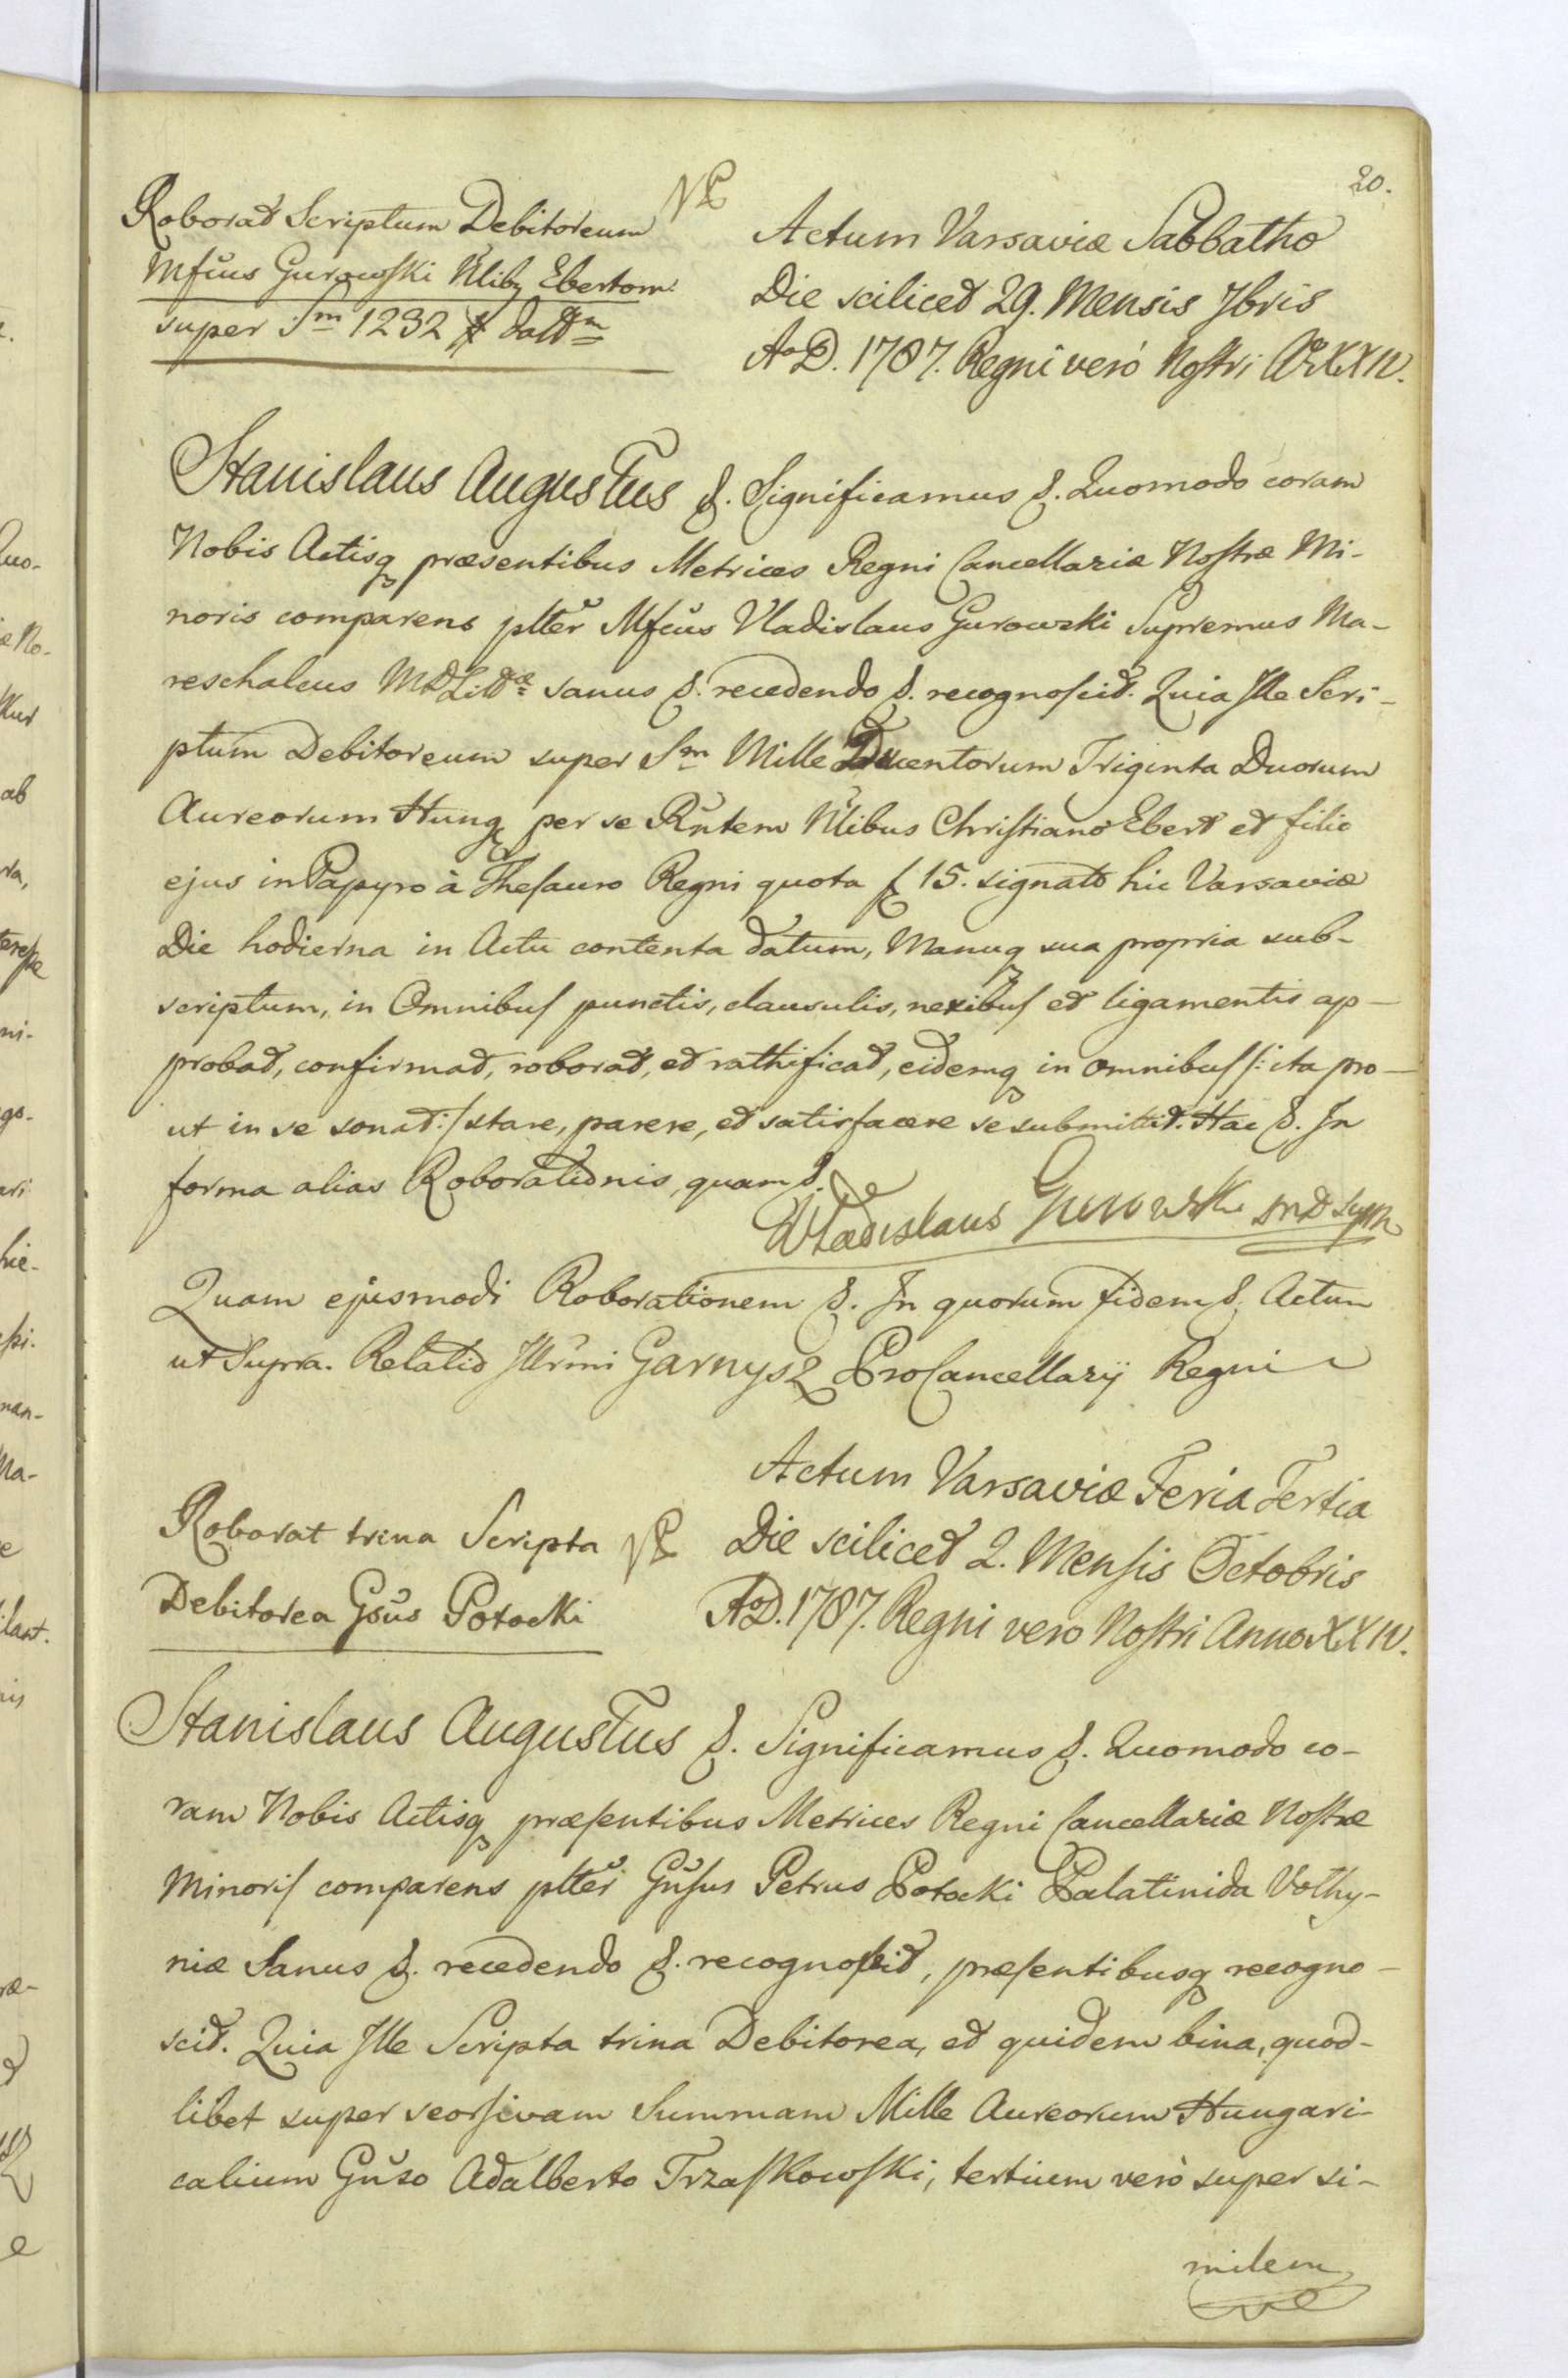 20.
Roborat Scriptum Debitoreum
Mfcus Gurowski Nlibq Ebertom
super Sm 1232 # datt m
Actum Varsaviæ Sabbatho
Die scilicet 29. Mensis 7bris
AoD. 1787. Regni verò Nostri Ao XXIV.
Stanislaus Augustus &. Significamus &. Quomodo coram
Nobis Actisq præsentibus Metrices Regni Cancellariæ Nostræ Mi-
noris comparens pltter Mfcus Vladislaus Gurowski Supremus Ma-
reschalcus MDLittæ sanus &. recedendo &. recognoscit. Quia Ille Scri-
ptum Debitoreum super Sm Mille Ducentorum Triginta Duorum
Aureorum Hung per se Rntem Nlibus Christiano Ebert et filio
ejus in Papyro à Thesauro Regni quota f 15. signato hic Varsaviæ
Die hodierna in Actu contenta datum, Manuq sua propria sub-
scriptum, in Omnibus punctis, clausulis, nexibus et ligamentis ap-
probat, confirmat, roborat, et rathificat, eidemq in omnibus /: ita pro-
ut in se sonat :/ stare, parere, et satisfacere se submittit. Hac &. In
forma alias Roborationis, quam &.
Wladislaus Gurowski
Quam ejusmodi Roborationem &. In quorum fidem &. Actum
ut Supra. Relatio Illrmi Garnysz ProCancellarij Regni
Actum Varsaviæ Feria Tertia
Die scilicet 2. Mensis Octobris
AoD. 1787. Regni vero Nostri Anno XXIV.
Roborat trina Scripta
Debitorea Gsus Potocki
Stanislaus Augustus &. Significamus &. Quomodo co-
ram Nobis Actisq præsentibus Metrices Regni Cancellariæ Nostræ
Minoris comparens pltter Gnsus Petrus Potocki Palatinida Volhy-
niæ Sanus &. recedendo &. recognoscit, præsentibusq recogno-
scit. Quia Ille Scripta trina Debitorea, et quidem bina, quod-
libet super seorsivam Summam Mille Aureorum Hungari-
calium Gnso Adalberto Trzaskowski, tertium verò super si-
milem